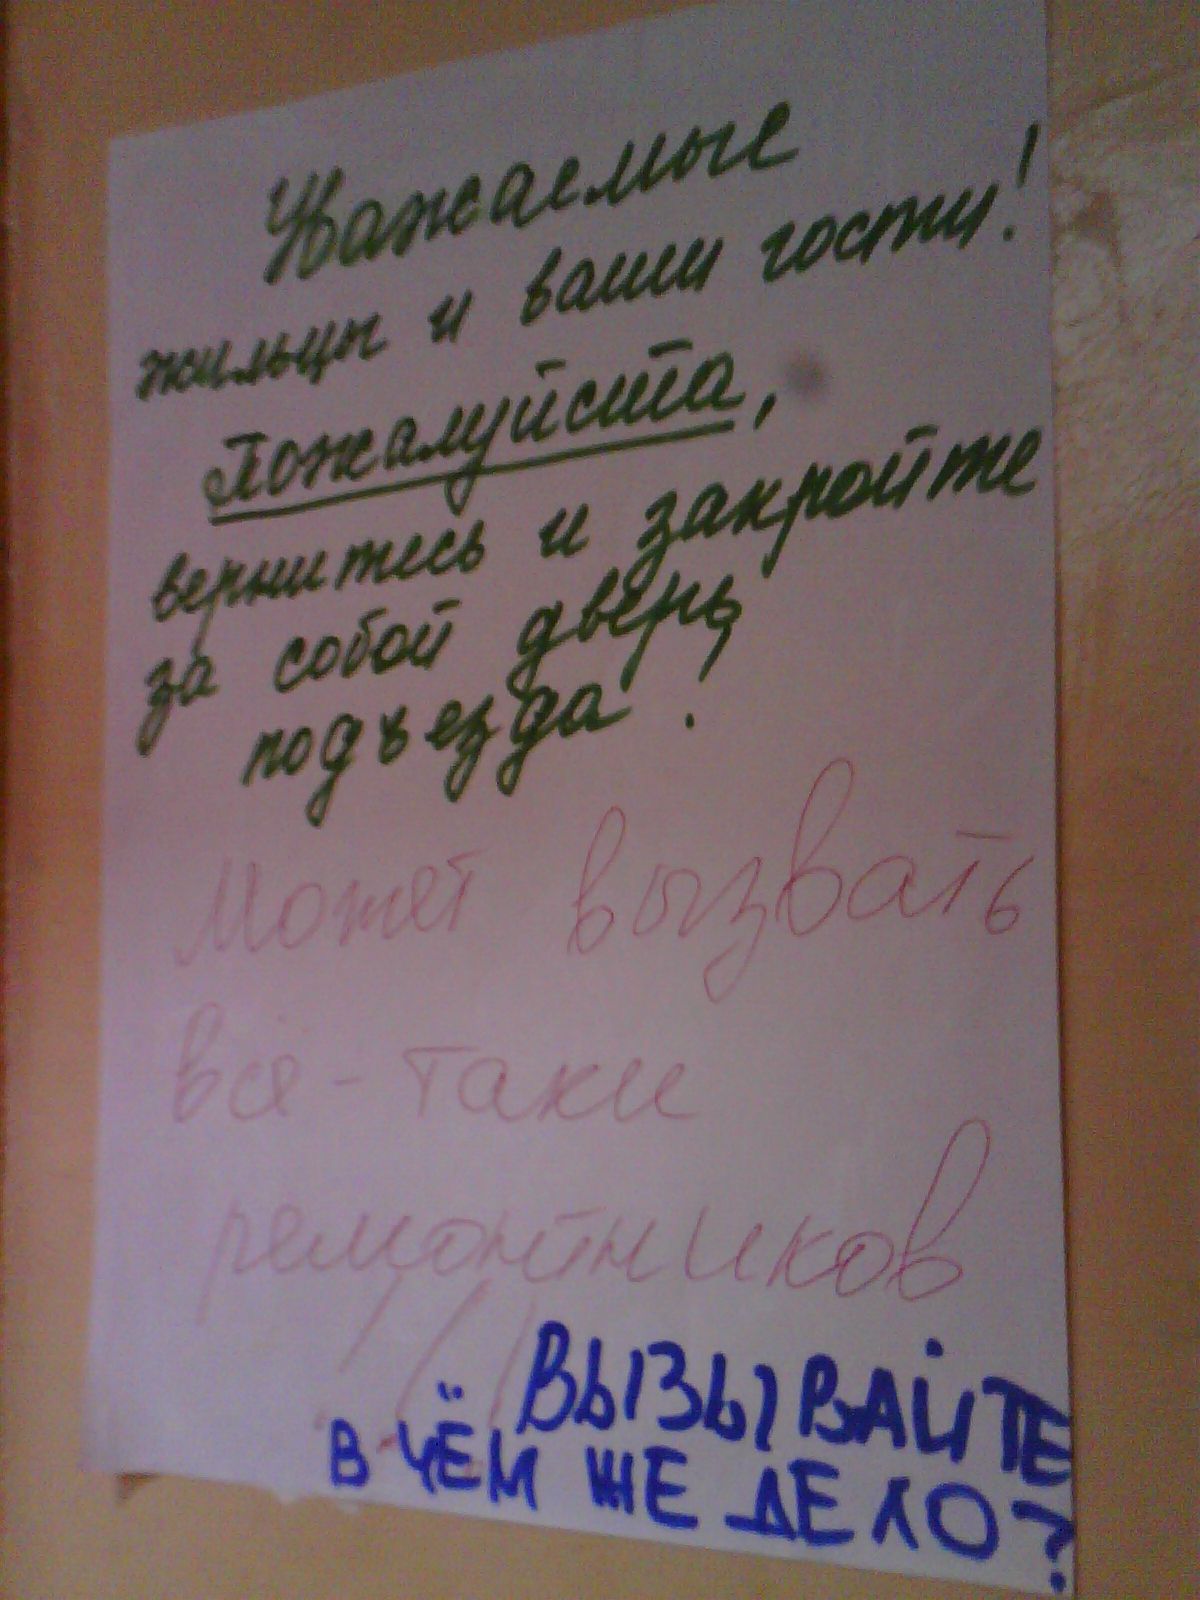 Уважаемые
жильцы и ваши гости!
Пожалуйста,
вернитесь и закройте
за собой дверь
подъезда!
Может вызвать
всё-таки
ремонтников
ВЫЗЫВАЙТЕ
В ЧЁМ ЖЕ ДЕЛО?